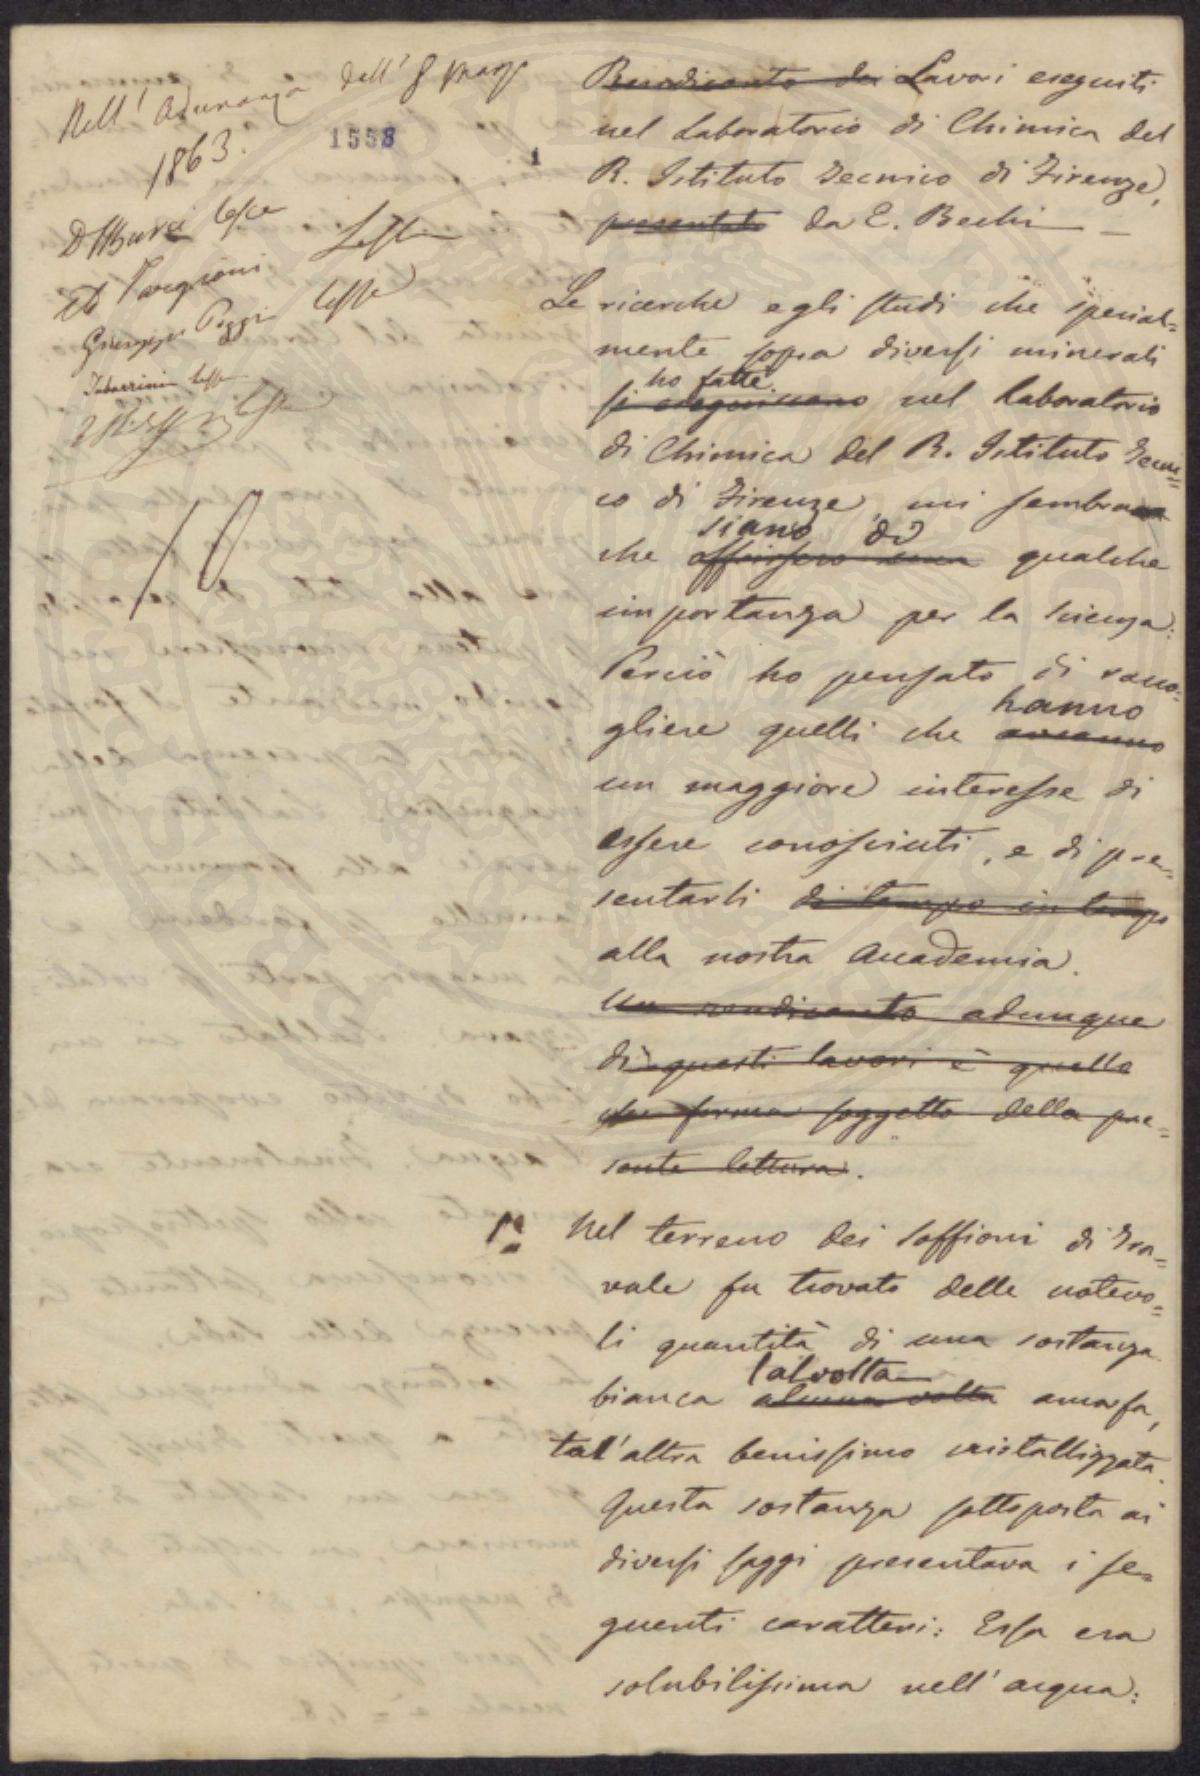 Nell' Adunanza dell' 8 Marzo
1863.
1558
1
D Burci lesse
Targioni
Giuseppe Poggi lesse
Tabarrini lesse
10
Rendiconto dei Lavori eseguiti
nel Laboratorio di Chimica del
R. Istituto Tecnico di Firenze,
presentato da E. Bechi —
Le ricerche e gli studi che special=
mente sopra diversi minerali
ho fatte
si eseguiscano nel laboratorio
di Chimica del R. Istituto Tecni=
co di Firenze, mi sembra
siano di
che offrissero una qualche
importanza per la scienza:
Perciò ho pensato di racco=
hanno
gliere quelli che avranno
un maggiore interesse di
essere conosciuti, e di pre=
sentarli di tempo in tempo
alla nostra Accademia.
Un rendiconto adunque
di questi lavori è quello
che forma soggetto della pre=
sente lettura.
1° Nel terreno dei soffioni di Tra=
vale fu trovato delle notevo=
li quantità di una sostanza
talvolta
bianca alcuna volta amorfa,
tal'altra benissimo cristallizzata.
Questa sostanza sottoposta ai
diversi saggi presentava i se=
guenti caratteri: Essa era
solubilissima nell' acqua: